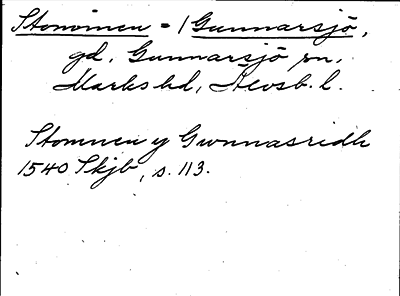 Stommen = / Gunnarsjö,
gd, Gunnarsjö sn,
Marks hd, Älvsb. l.
Stommen y Gwnnasridh
1540 Skjb, s. 113.